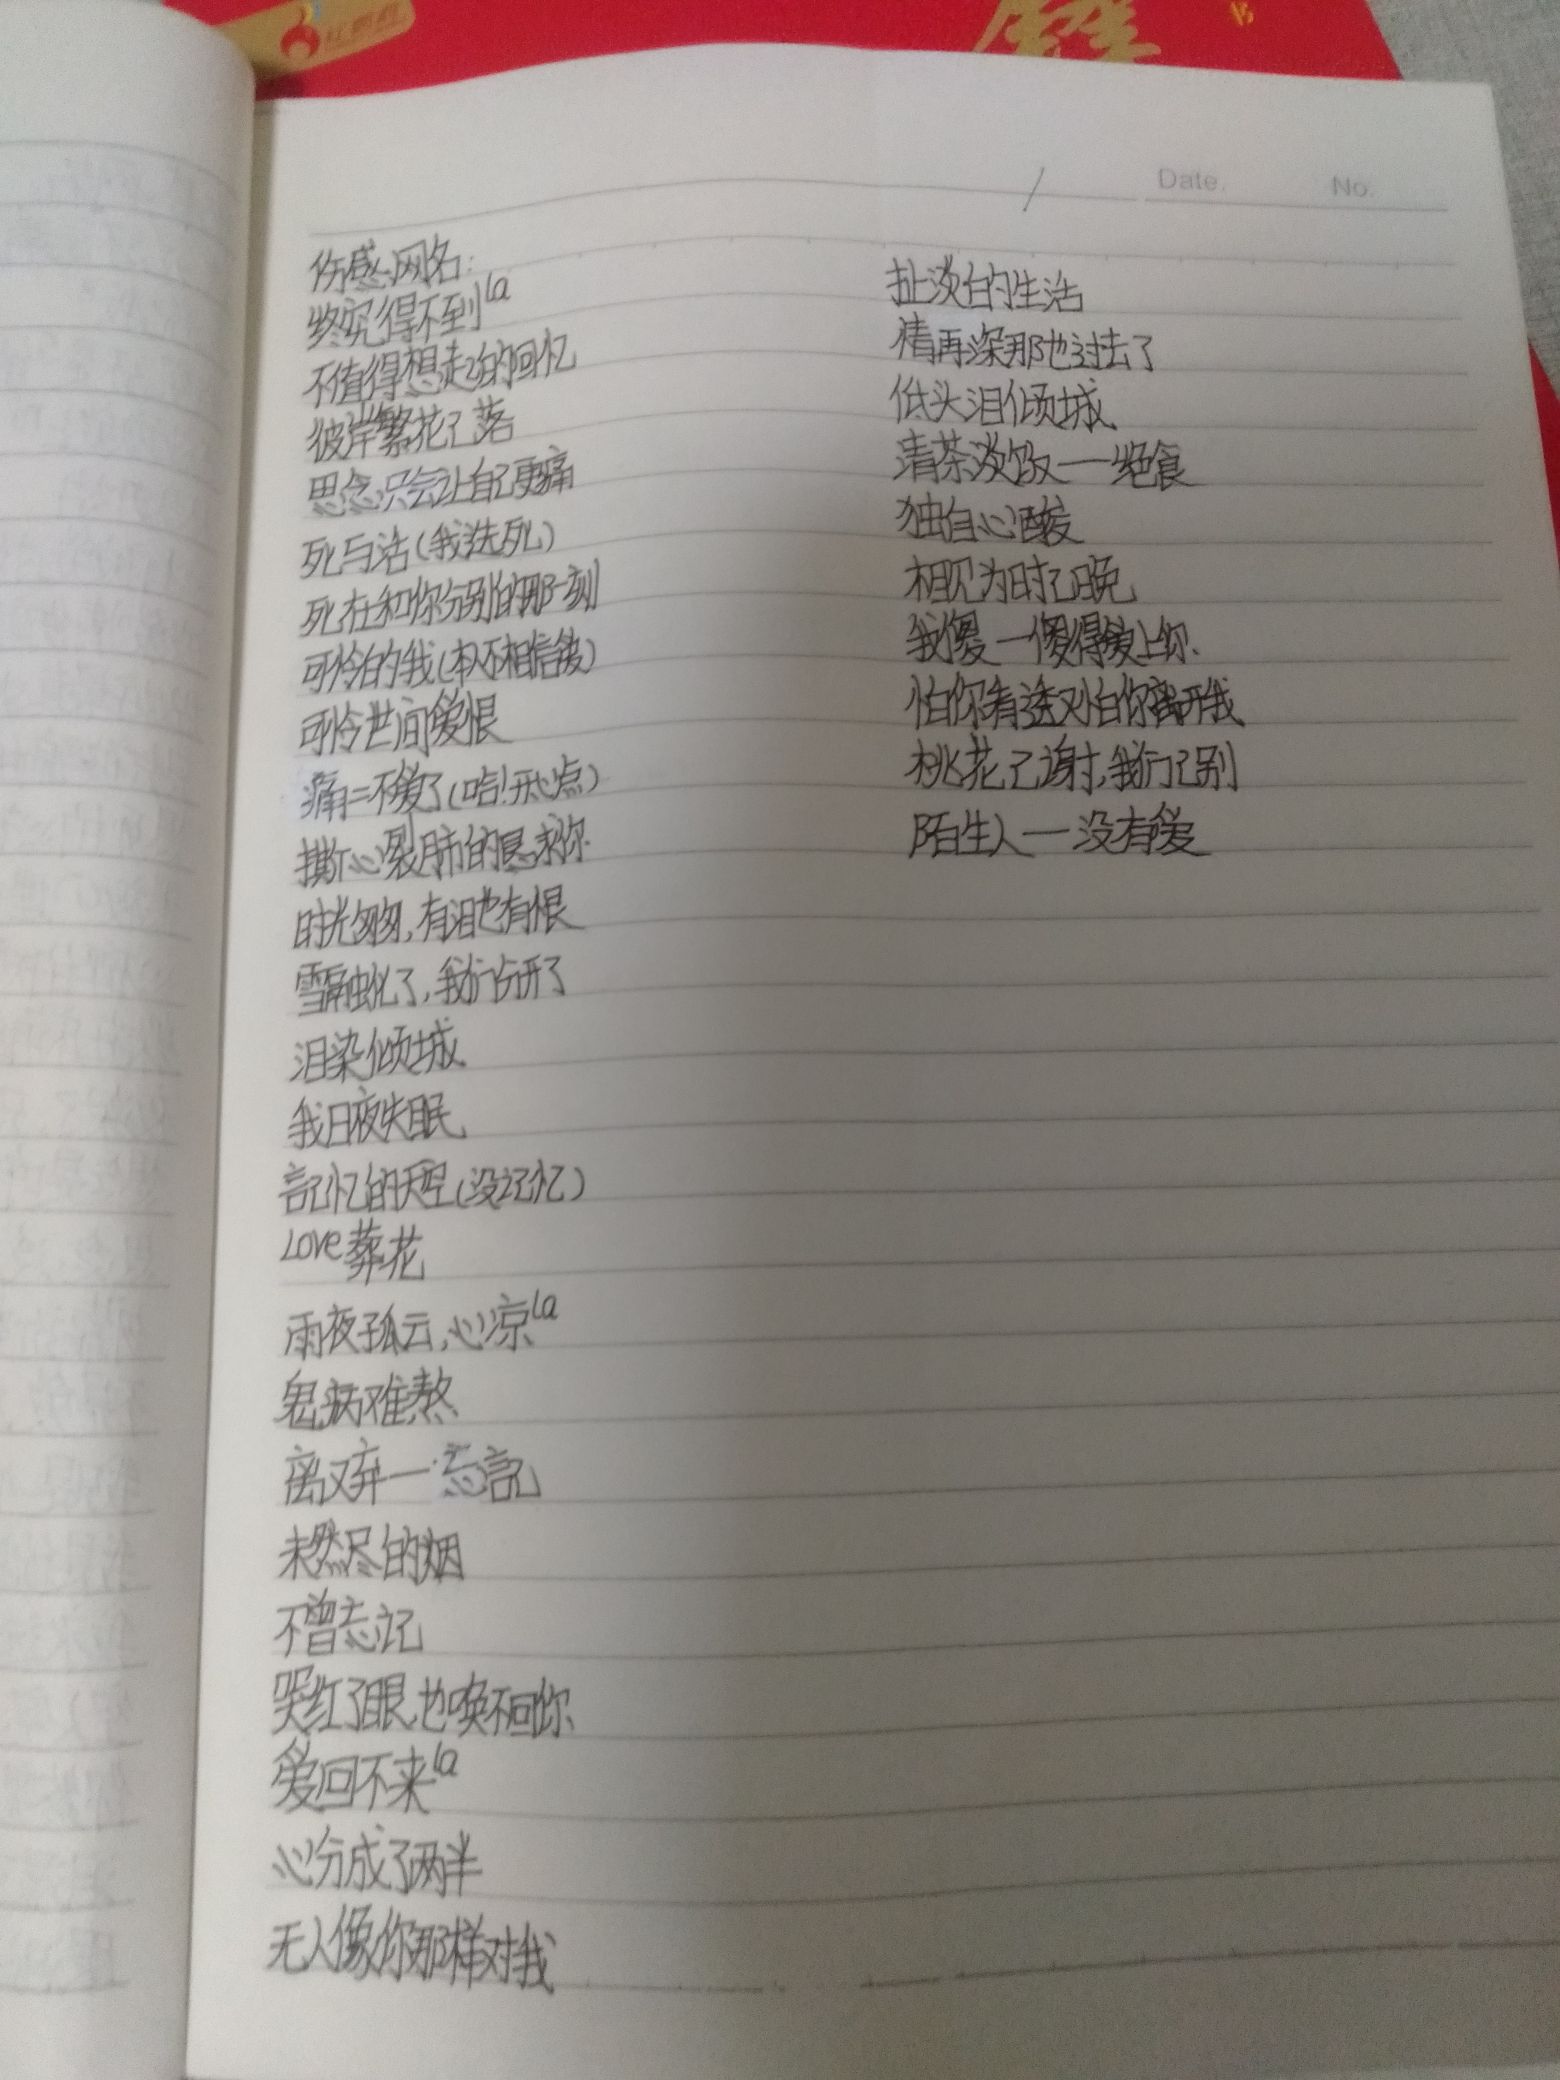 Date.
No.
伤感网名:
终究得不到la
不值得想起的回忆
彼岸繁花已落
思念只会让自己更痛
死与活(我选死)
死在和你分别的那一刻
可怜的我(本人不相信爱)
可怜世间爱恨
痛=不爱了(哈!开心点)
撕心裂肺的恳求你
时光匆匆,有泪也有恨
雪融化了,我们分开了
泪染倾城
我日夜失眠
記忆的天空(没记忆)
Love葬花
雨夜孤云,心凉la
鬼病难熬
离又弃一忘記
未然尽的烟
不曾忘记
哭红了眼也唤不回你
爱回不来la
心分成了两半
无人像你那样对我
扯淡的生活
情再深那也过去了
低头泪倾城
清茶淡饭一绝食
独自心酸
相见为时已晚
我傻一傻得爱上你
怕你有迷又怕你离开我
桃花已谢,我们已别
陌生人一没有爱